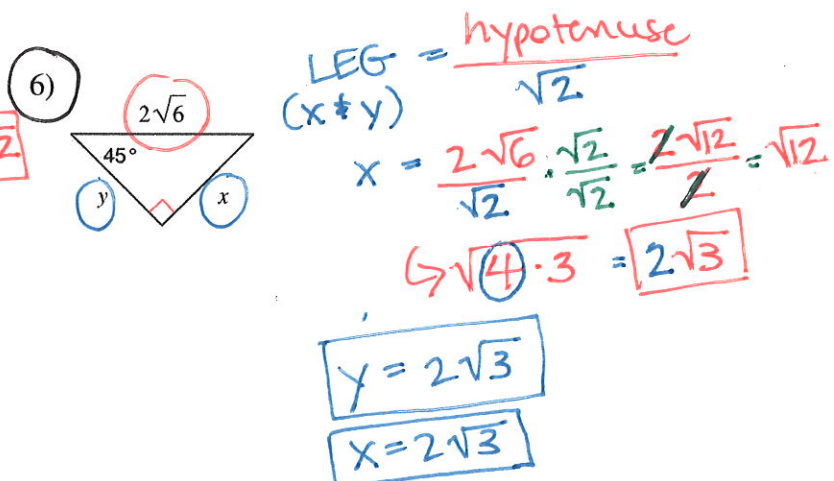 6)
2√6
45°
y
x
2
LEG = hypotenuse / √2
(x & y)
x = 2√6/√2 · √2/√2 = 2√12/2 = √12
↳ √4·3 = 2√3
y = 2√3
x = 2√3